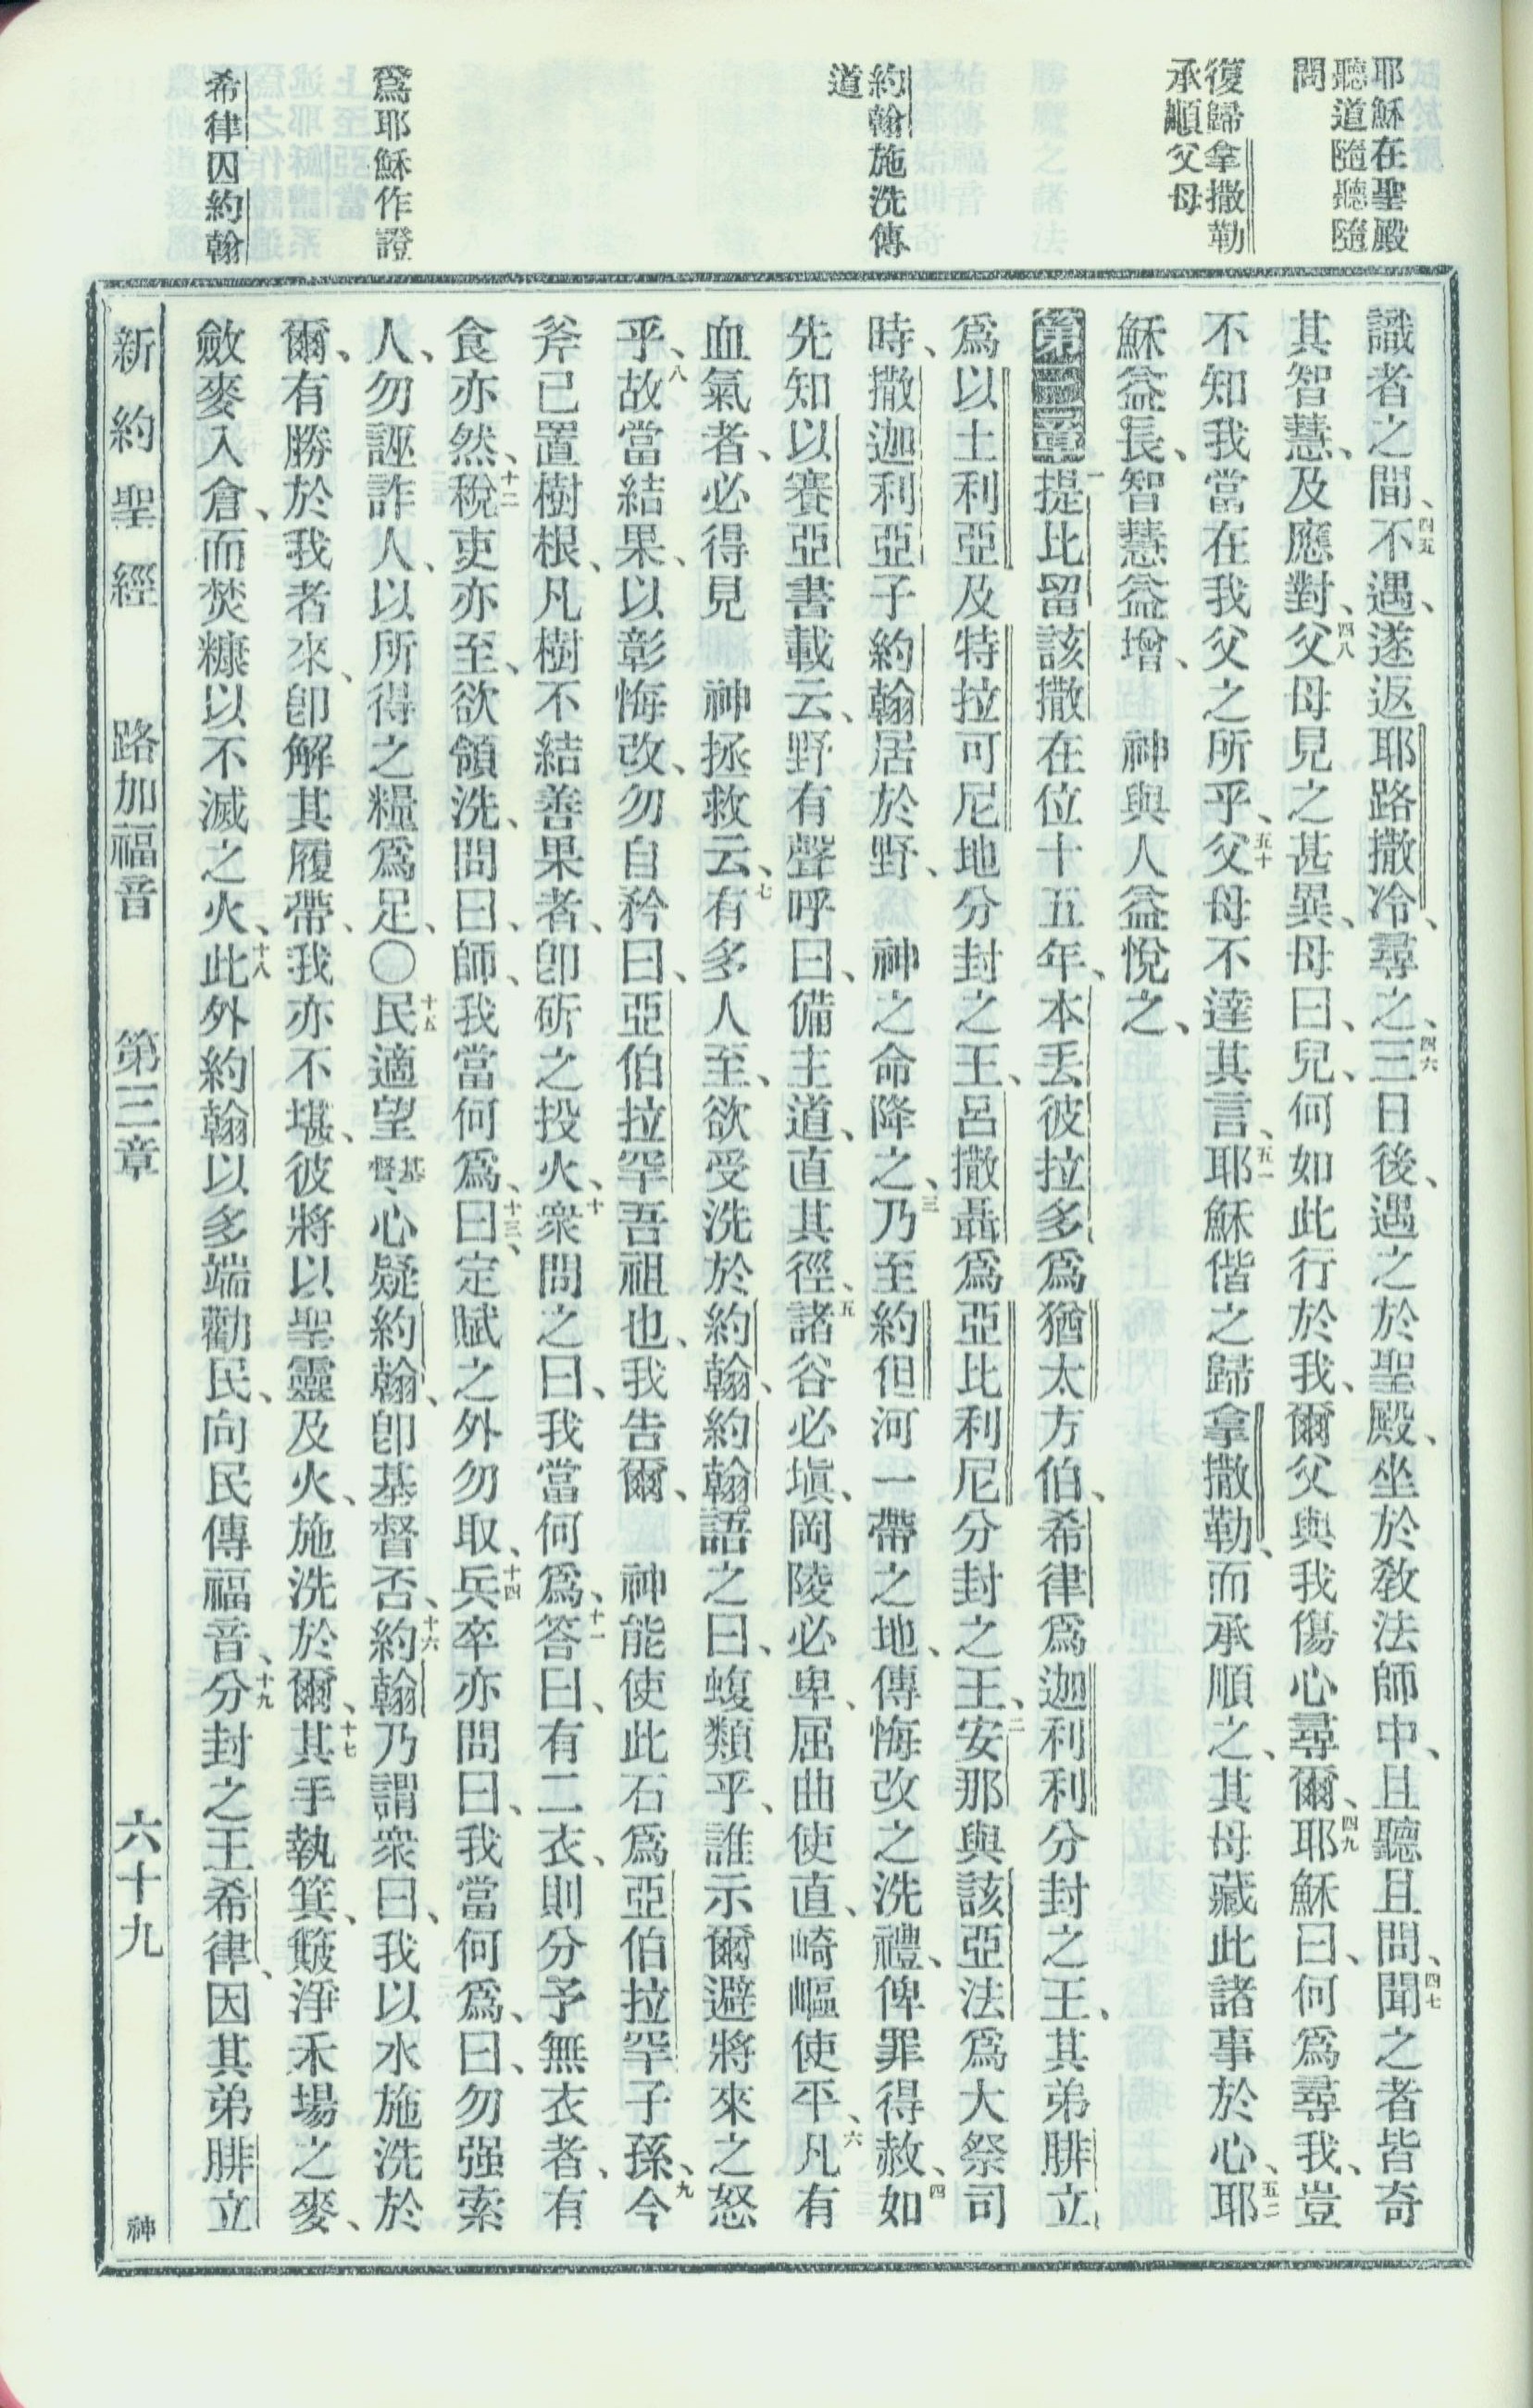 耶穌在聖殿
聽道隨聽隨
問
復歸拿撒勒
承順父母
約翰施洗傳
道
爲耶穌作證
希律囚約翰
識者之間、四五不遇、遂返耶路撒冷、尋之、四六三日後、遇之於聖殿、坐於敎法師中、且聽且問、四七聞之者皆奇
其智慧、及應對、四八父母見之甚異、母曰、兒、何如此行於我、爾父與我傷心尋爾、四九耶穌曰、何爲尋我、豈
不知我當在我父之所乎、五十父母不達其言、五一耶穌偕之歸拿撒勒、而承順之、其母藏此諸事於心、五二耶
穌益長、智慧益增、神與人益悅之、
第三章一提比留該撒在位十五年、本丟彼拉多爲猶太方伯、希律爲迦利利分封之王、其弟腓立
爲以土利亞及特拉可尼地分封之王、呂撒聶爲亞比利尼分封之王、二安那與該亞法爲大祭司
時、撒迦利亞子約翰居於野、神之命降之、三乃至約但河一帶之地、傳悔改之洗禮、俾罪得赦、四如
先知以賽亞書載云、野有聲呼曰、備主道、直其徑、五諸谷必塡、岡陵必卑、屈曲使直、崎嶇使平、六凡有
血氣者、必得見 神拯救云、七有多人至、欲受洗於約翰、約翰語之曰、蝮類乎、誰示爾避將來之怒
乎、八故當結果、以彰悔改、勿自矜曰、亞伯拉罕吾祖也、我告爾、神能使此石爲亞伯拉罕子孫、九今
斧已置樹根、凡樹不結善果者、卽斫之投火、十衆問之曰、我當何爲、十一答曰、有二衣、則分予無衣者、有
食亦然、十二稅吏亦至、欲領洗、問曰、師、我當何爲、十三曰、定賦之外勿取、十四兵卒亦問曰、我當何爲、曰、勿强索
人、勿誣詐人、以所得之糧爲足、○十五民適望基督、心疑約翰、卽基督否、十六約翰乃謂衆曰、我以水施洗於
爾、有勝於我者來、卽解其履帶、我亦不堪、彼將以聖靈及火、施洗於爾、十七其手執箕、簸淨禾場之麥、
斂麥入倉、而焚糠以不滅之火、十八此外約翰以多端勸民、向民傳福音、十九分封之王希律、因其弟腓立
新約聖經 路加福音 第三章 六十九 神